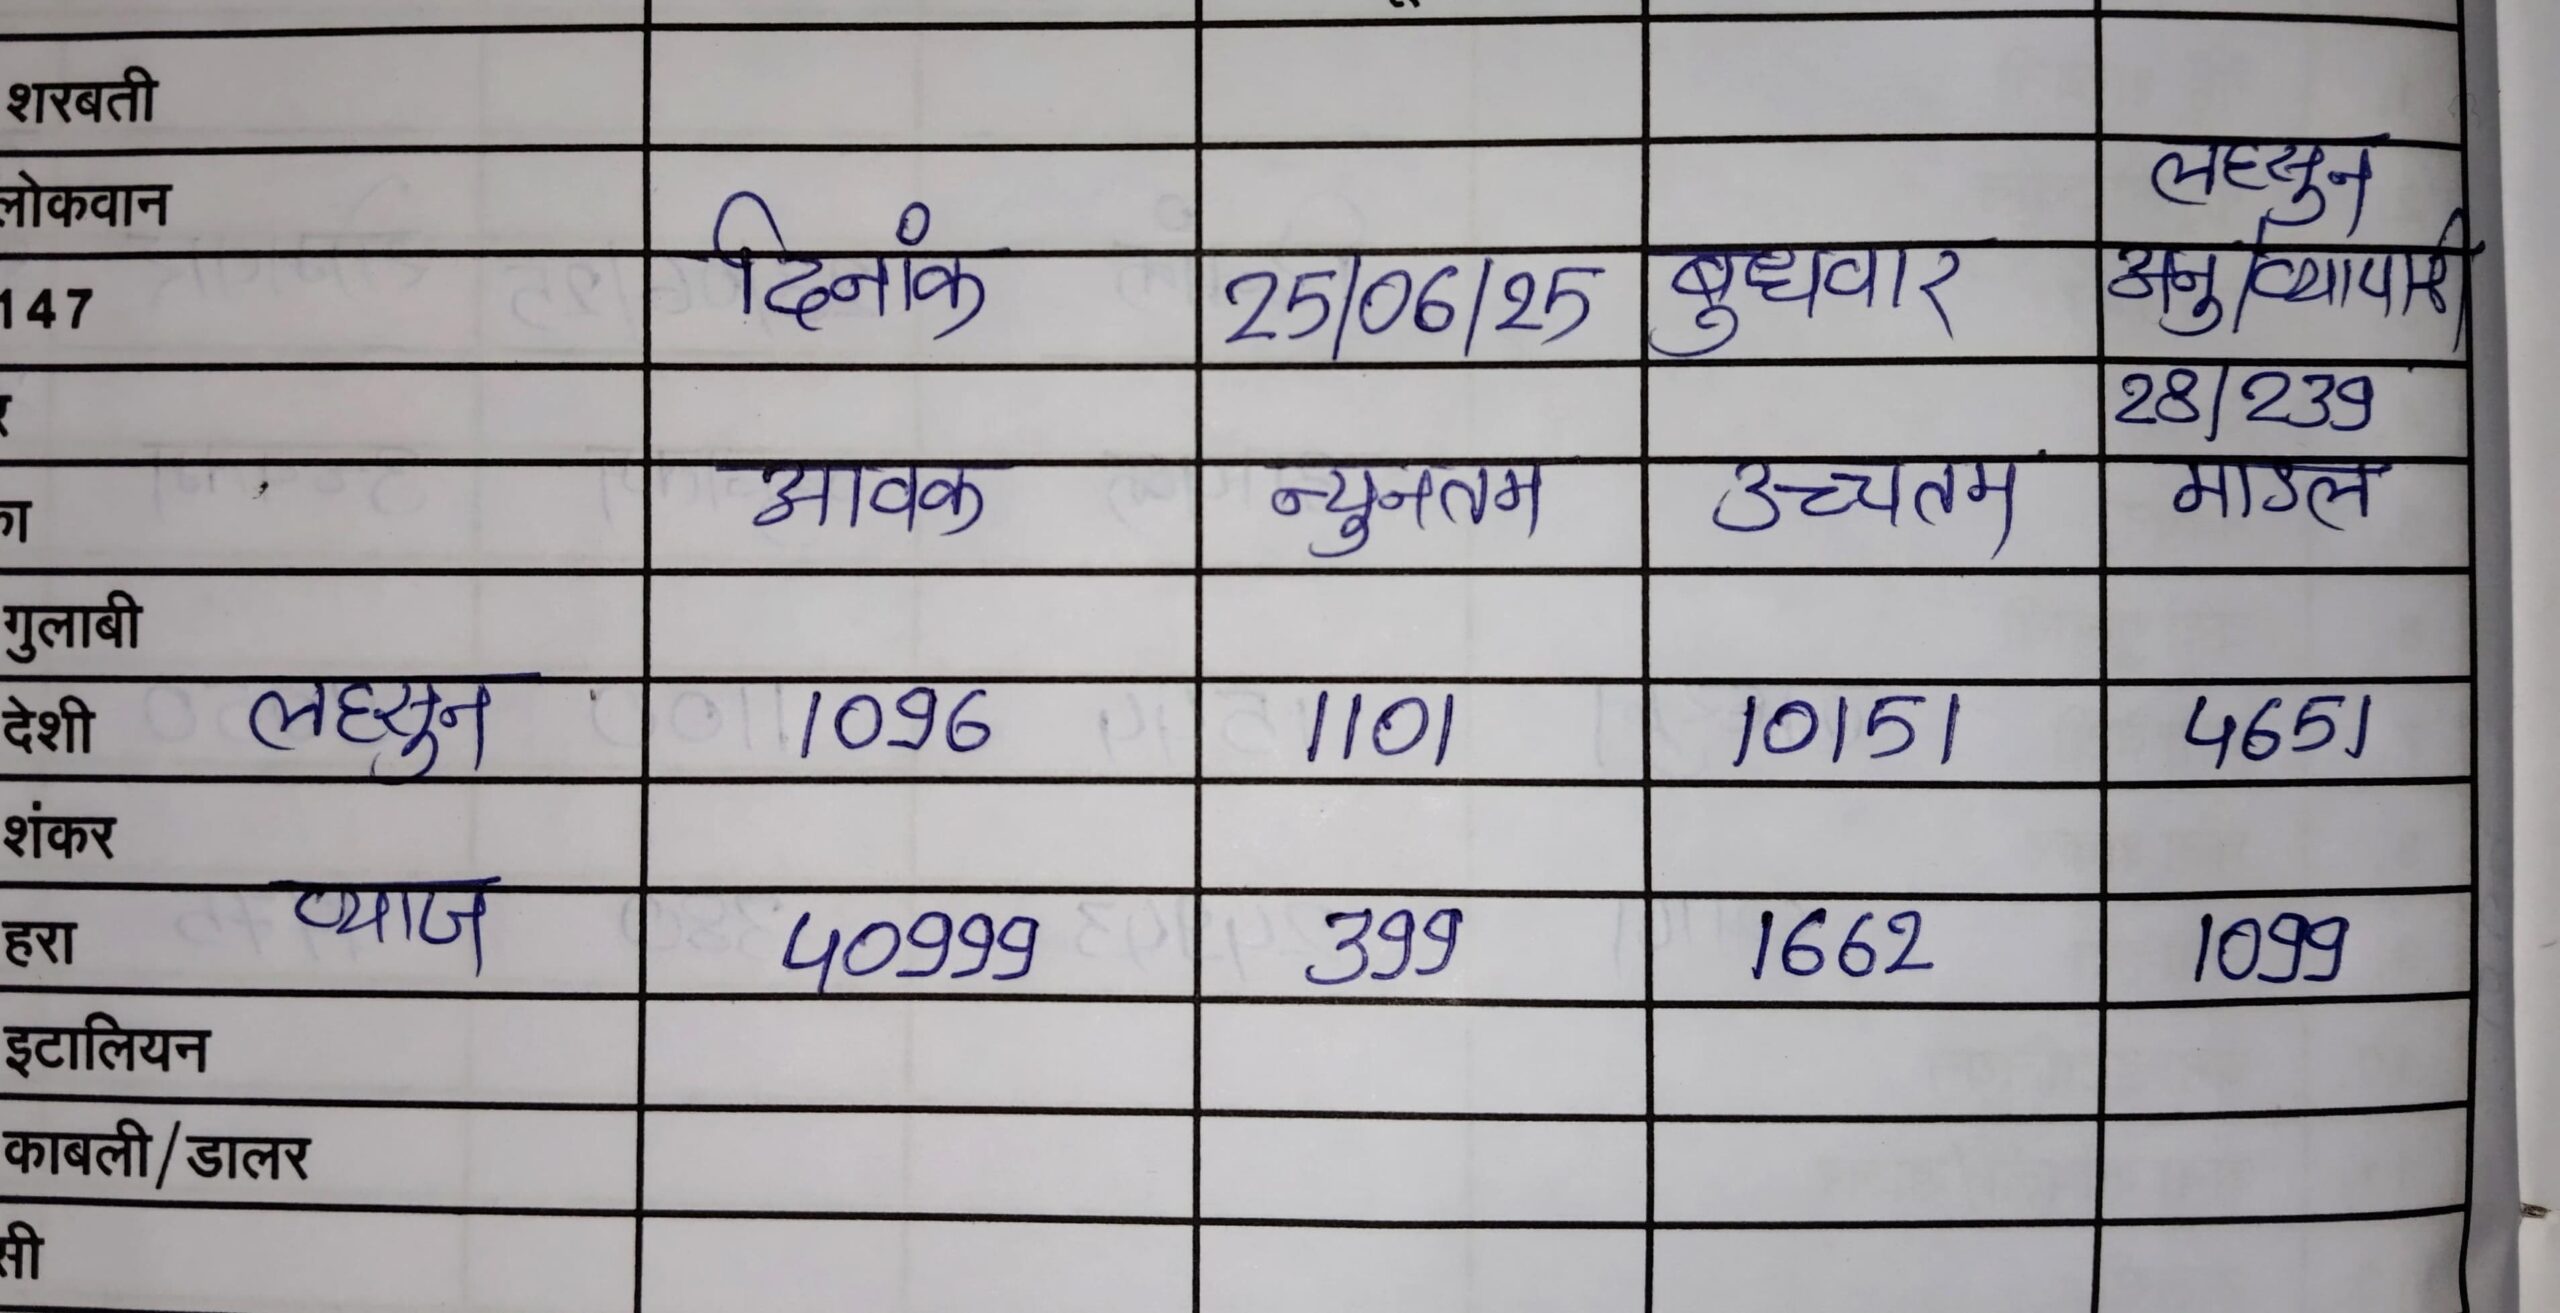 शरबती
लोकवान लहसुन
147 दिनांक 25/06/25 बुधवार अनु/व्यापारी
28/239
का आवक न्युनतम उच्चतम माडल
गुलाबी
देशी लहसुन 1096 1101 10151 4651
शंकर
हरा प्याज 40999 399 1662 1099
इटालियन
काबली/डालर
सी